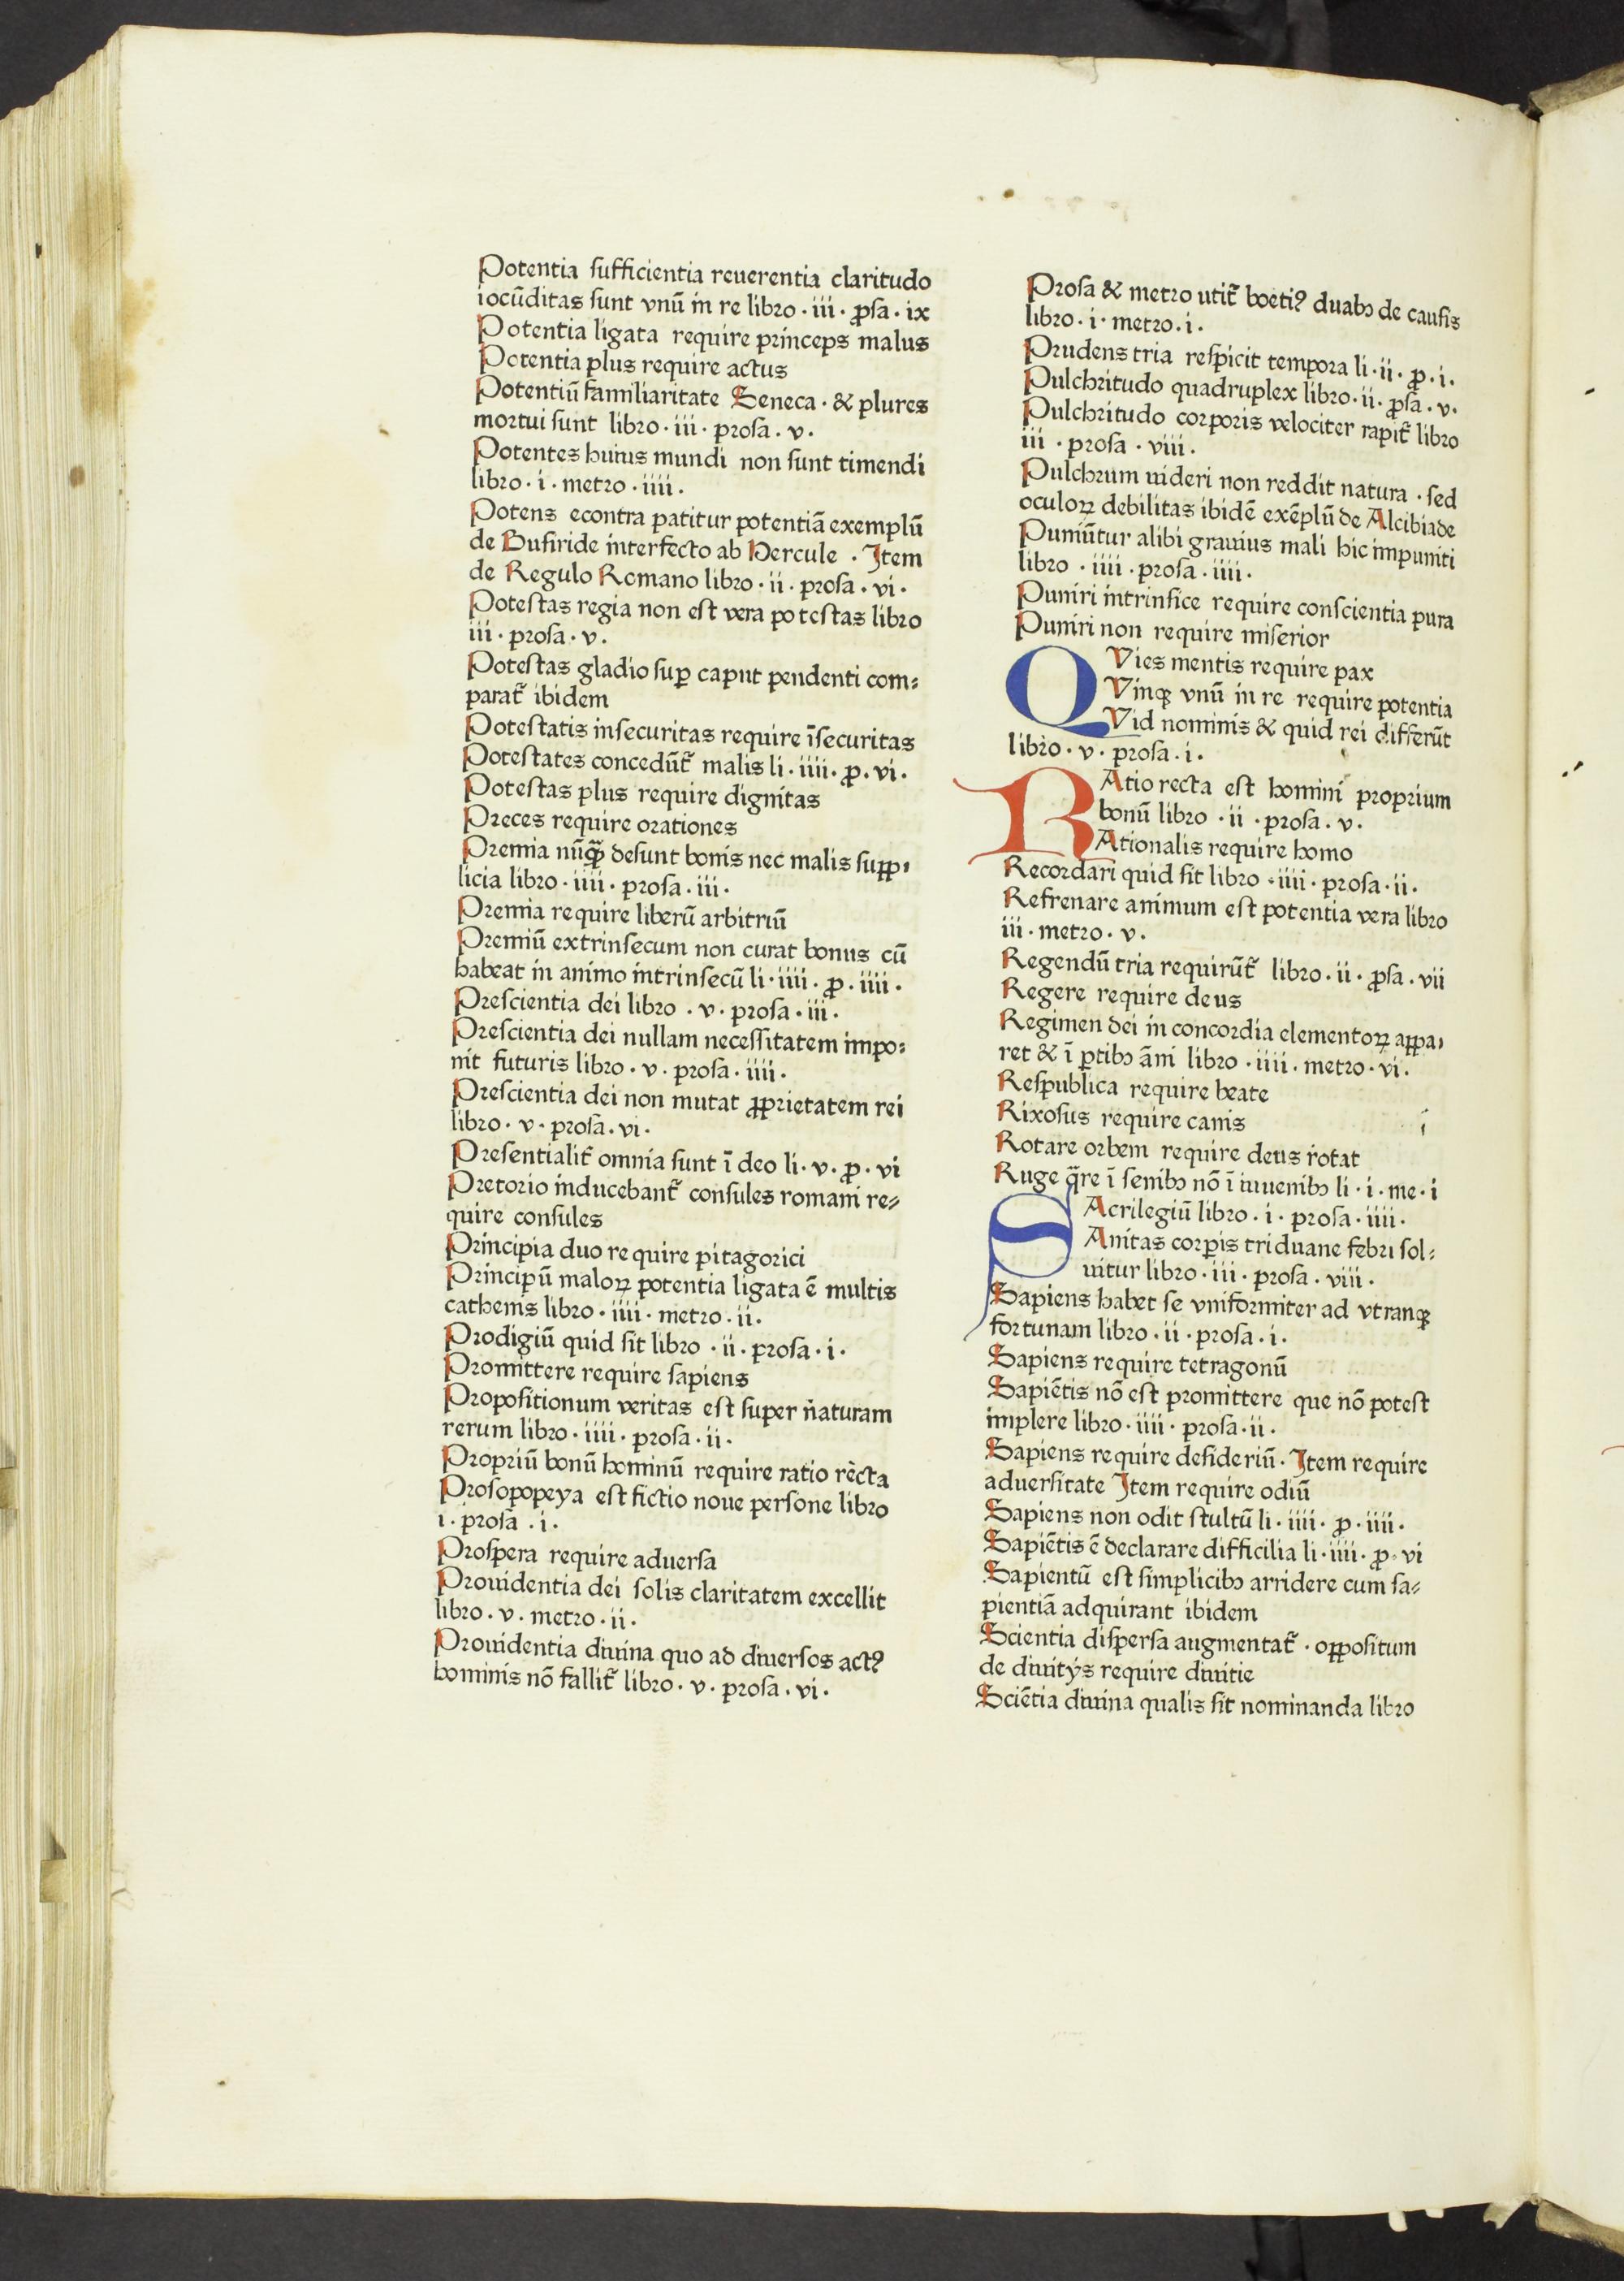 Potentia sufficientia reuerentia claritudo
iocūditas sunt vnū in re libro · iii · ꝓsa · ix
Potentia ligata require princeps malus
Potentia plus require actus
Potentiū familiaritate Seneca · & plures
mortui sunt libro · iii · prosa · v ·
Potentes huius mundi non sunt timendi
libro · i · metro · iiii ·
Potens econtra patitur potentiā exemplū
de Busiride interfecto ab Hercule · Item
de Regulo Romano libro · ii · prosa · vi ·
Potestas regia non est vera potestas libro
iii · prosa · v ·
Potestas gladio suꝑ caput pendenti com⸗
parat᷑ ibidem
Potestatis insecuritas require īsecuritas
Potestates concedūt᷑ malis li · iiii · ꝓ · vi ·
Potestas plus require dignitas
Preces require orationes
Premia nūꝙ̄ desunt bonis nec malis supp⸗
licia libro · iiii · prosa · iii ·
Premia require liberū arbitriū
Premiū extrinsecum non curat bonus cū
habeat in animo intrinsecū li · iiii · ꝓ · iiii ·
Prescientia dei libro · v · prosa · iii ·
Prescientia dei nullam necessitatem impo⸗
nit futuris libro · v · prosa · iiii ·
Prescientia dei non mutat ꝓprietatem rei
libro · v · prosa · vi ·
Presentialit᷑ omnia sunt ī deo li · v · ꝓ · vi
Pretorio inducebant᷑ consules romani re⸗
quire consules
Principia duo require pitagorici
Principū maloꝝ potentia ligata ē multis
cathenis libro · iiii · metro · ii ·
Prodigiū quid sit libro · ii · prosa · i ·
Promittere require sapiens
Propositionum veritas est super naturam
rerum libro · iiii · prosa · ii ·
Propriū bonū hominū require ratio recta
Prosopopeya est fictio noue persone libro
i · prosa · i ·
Prospera require aduersa
Prouidentia dei solis claritatem excellit
libro · v · metro · ii ·
Prouidentia diuina quo ad diuersos actꝰ
hominis nō fallit᷑ libro · v · prosa · vi ·
Prosa & metro utit᷑ boetiꝰ duabꝫ de causis
libro · i · metro · i ·
Prudens tria respicit tempora li · ii · ꝓ · i ·
Pulchritudo quadruplex libro · ii · ꝓsa · v ·
Pulchritudo corporis velociter rapit᷑ libro
iii · prosa · viii ·
Pulchrum uideri non reddit natura · sed
oculoꝝ debilitas ibidē exēplū de Alcibiade
Puniūtur alibi grauius mali hic impuniti
libro · iiii · prosa · iiii ·
Puniri intrinsice require conscientia pura
Puniri non require miserior
QVies mentis require pax
Vinqꝫ vnū in re require potentia
Vid nominis & quid rei differūt
libro · v · prosa · i ·
RAtio recta est homini proprium
bonū libro · ii · prosa · v ·
Ationalis require homo
Recordari quid sit libro · iiii · prosa · ii ·
Refrenare animum est potentia vera libro
iii · metro · v ·
Regendū tria requirūt᷑ libro · ii · ꝓsa · vii
Regere require deus
Regimen dei in concordia elementoꝝ appa⸗
ret & ī ꝑtibꝫ āni libro · iiii · metro · vi ·
Respublica require beate
Rixosus require canis
Rotare orbem require deus rotat
Ruge q̄re ī senibꝫ nō ī iuuenibꝫ li · i · me · i
SAcrilegiū libro · i · prosa · iiii ·
Anitas corꝑis triduane febri sol⸗
uitur libro · iii · prosa · viii ·
Sapiens habet se vniformiter ad vtranqꝫ
fortunam libro · ii · prosa · i ·
Sapiens require tetragonū
Sapiētis nō est promittere que nō potest
implere libro · iiii · prosa · ii ·
Sapiens require desideriū · Item require
aduersitate Item require odiū
Sapiens non odit stultū li · iiii · ꝓ · iiii ·
Sapiētis ē declarare difficilia li · iiii · ꝓ · vi
Sapientū est simplicibꝫ arridere cum sa⸗
pientiā adquirant ibidem
Scientia dispersa augmentat᷑ · oppositum
de diuitijs require diuitie
Sciētia diuina qualis sit nominanda libro